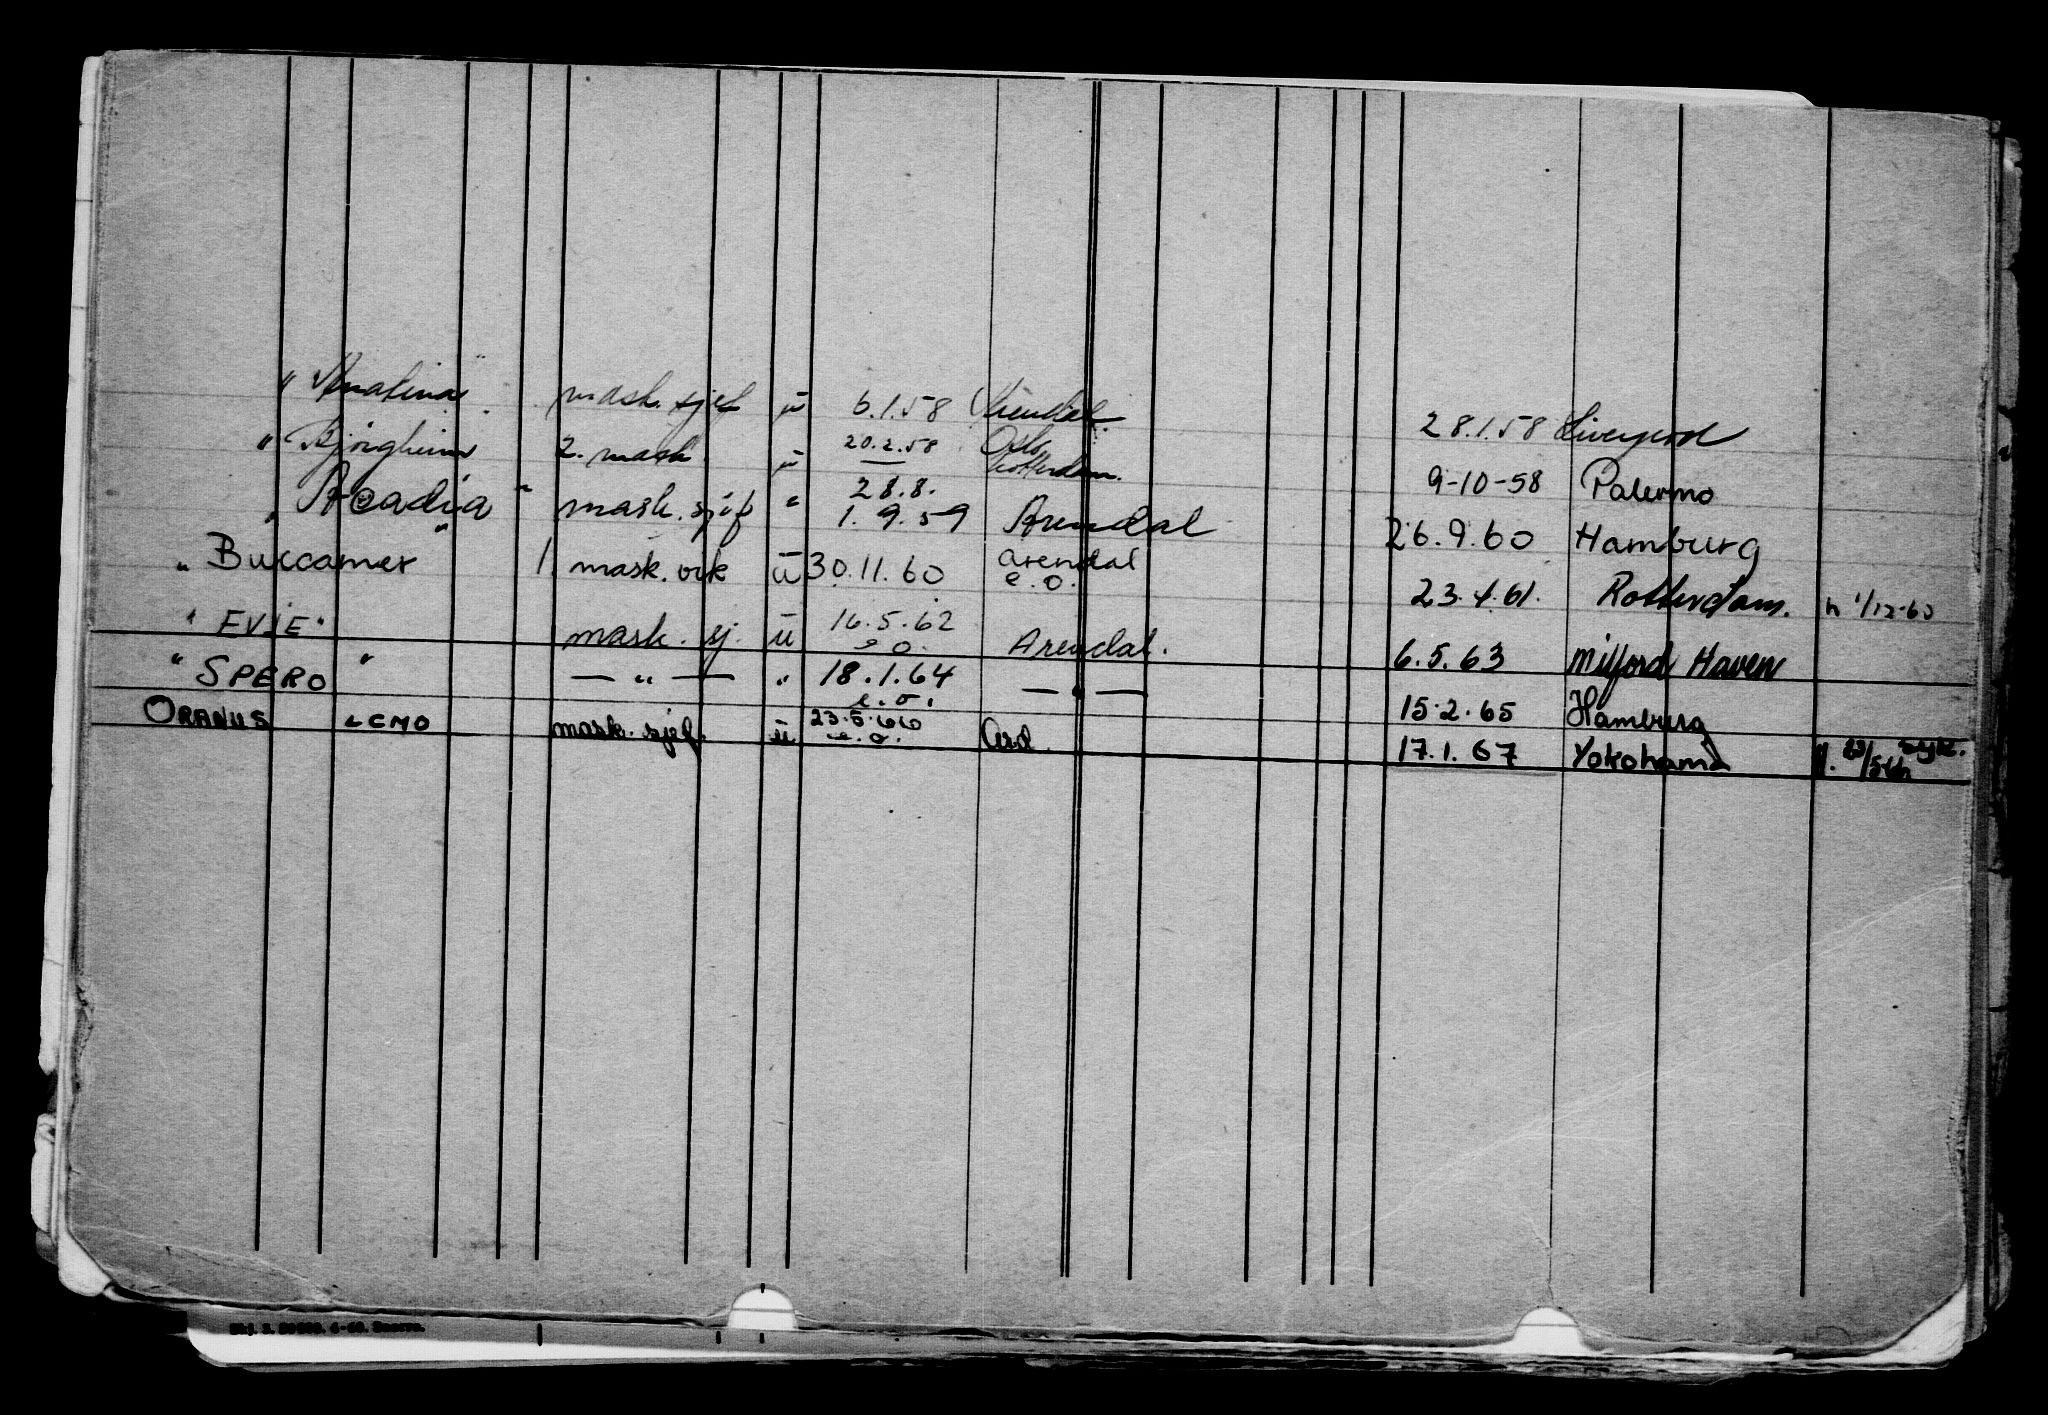 " mask. sjef ū 6.1.58 Arendal. 28.1.58 Liverpool
" Bjorgheim 2. mask. ū 20.2.58 Oslo Rotterdam. 9-10-58 Palermo
28.8.
" Arcadia " mask. sjef " 1.9.59 Arendal 26.9.60 Hamburg
" Buccaneer " 1. mask. vik ū 30.11.60 Arendal e.o. 23.4.61. Rotterdam. n 1/12-60
" EVJE " mask. sj. ū 16.5.62 e.o. Arendal. 6.5.63 Milford Haven
" SPERO " — " — " 18.1.64 e.o. — " — 15.2.65 Hamburg
ORANUS LEMO mask. sjef. ū 23.5.66 e.o. Ard. 17.1.67 Yokohama syk.